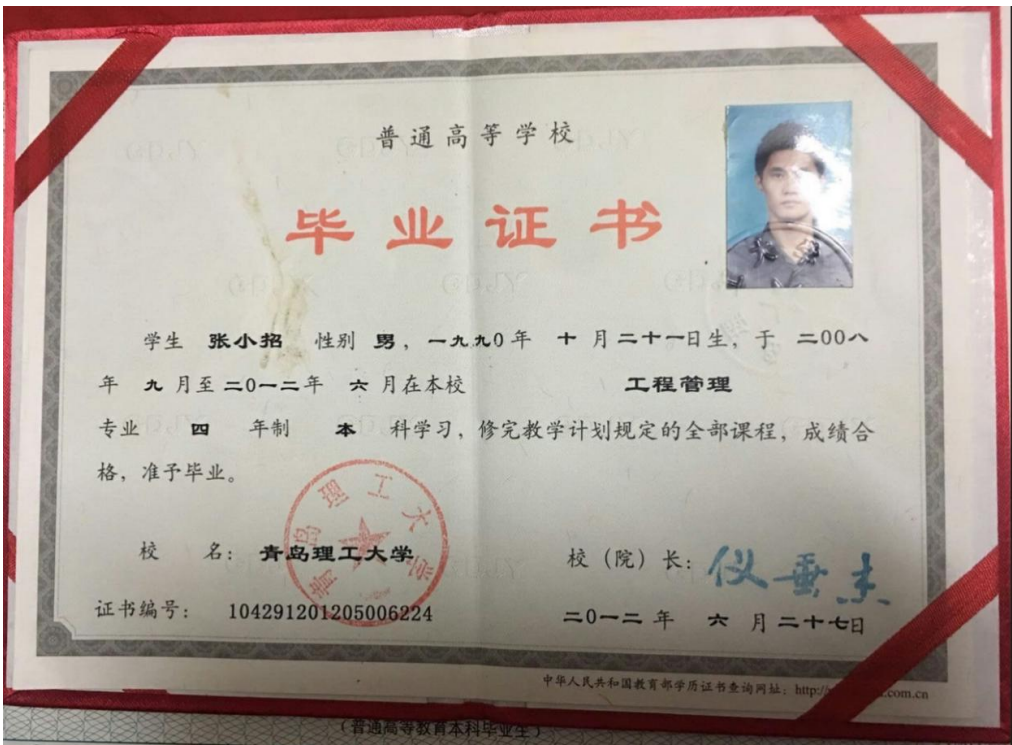 普通高等学校
毕业证书
学生 张小招 性别 男，一九九0年 十 月二十一日生，于 二00八
年 九 月至二0一二年 六 月在本校 工程管理
专业 四 年制 本 科学习，修完教学计划规定的全部课程，成绩合
格，准予毕业。
青岛理工大学
校 名：青岛理工大学
校（院）长：仪垂杰
证书编号：104291201205006224
二0一二年 六 月二十七日
中华人民共和国教育部学历证书查询网址：http://
.com.cn
（普通高等教育本科毕业生）